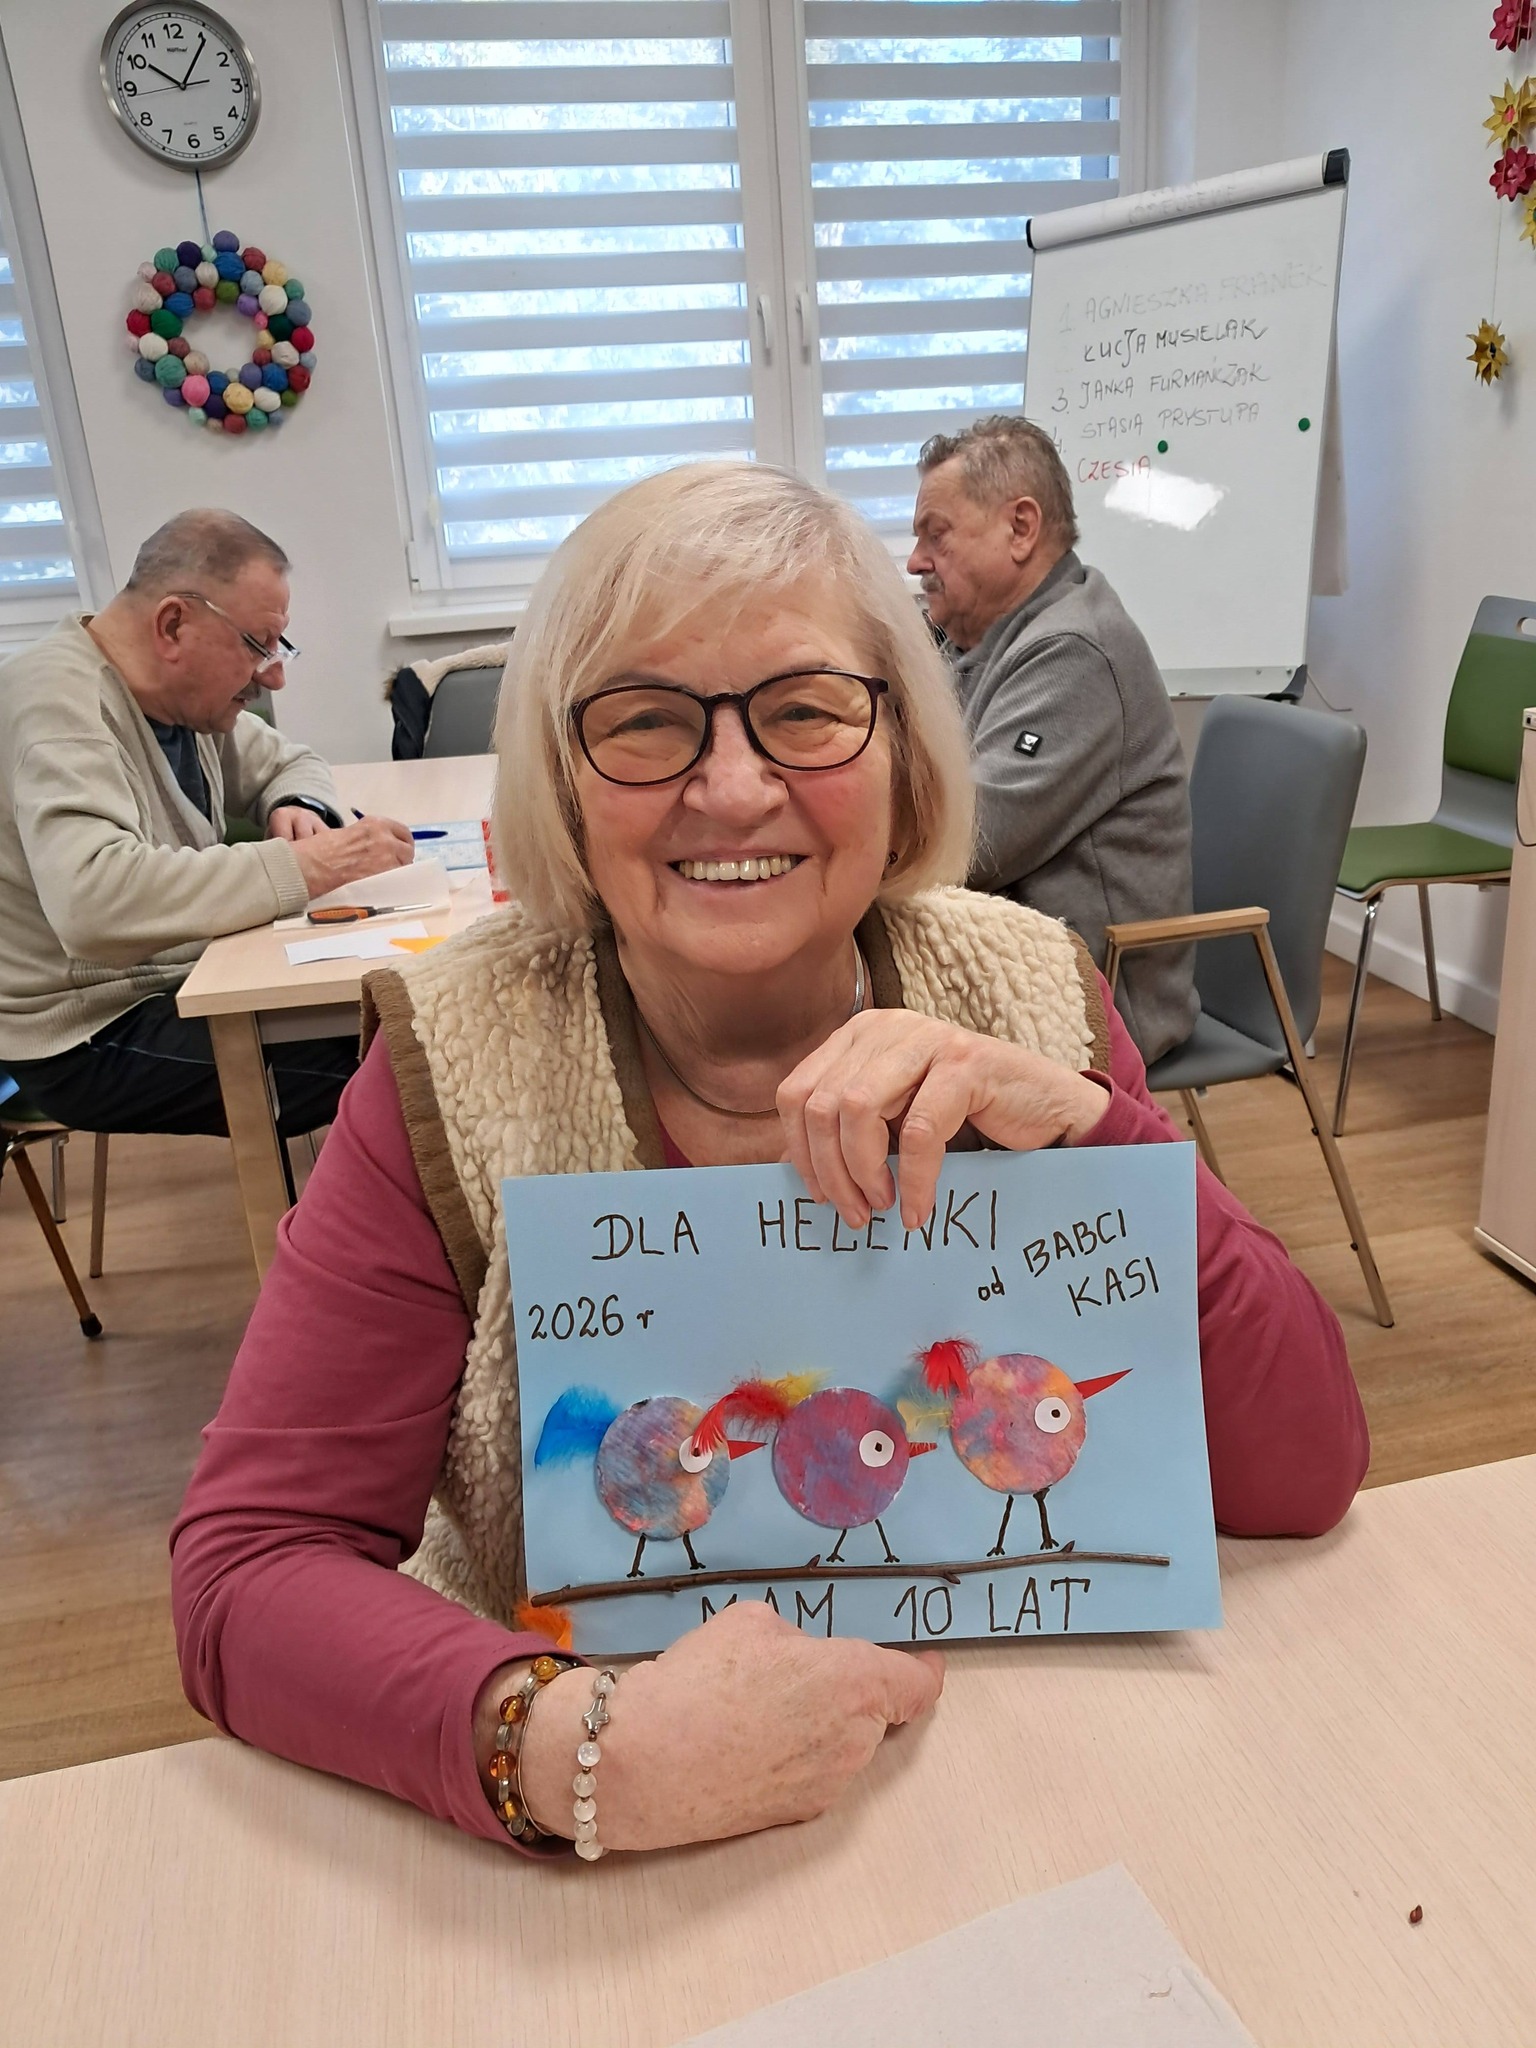 11 12 1
10 2
9 3
8 4
7 6 5
1. AGNIESZKA FRANEK
ŁUCJA MUSIELAK
3. JANKA FURMAŃCZAK
4. STASIA PRYSTUPA
CZESIA
DLA HELENKI
od BABCI
KASI
2026 r
MAM 10 LAT